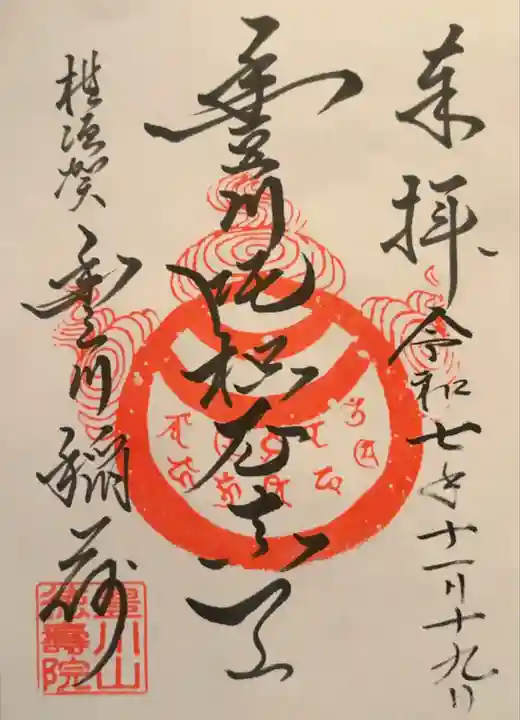 奉拝
令和七年十一月十九日
豊川吒枳尼真天
横須賀
豊川稲荷
豊川山
徳壽院